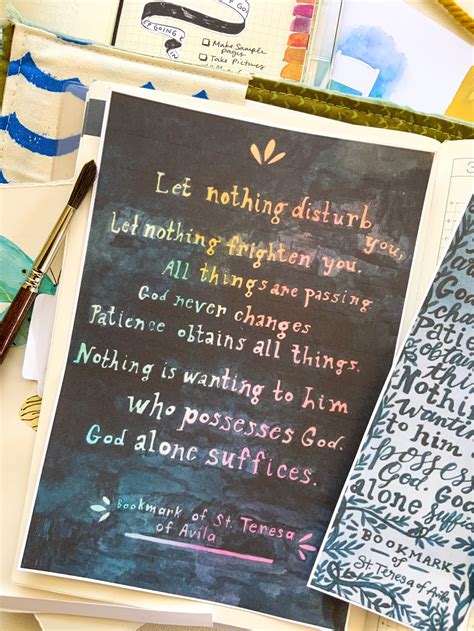 GOING
Make Sample
pages
Take Pictures
Let nothing disturb
you,
Let nothing frighten you.
All things are passing
God never changes
Patience obtains all things.
Nothing is wanting to him
who possesses God.
God alone suffices.
Bookmark of St. Teresa
of Avila
God
Nothing
to him
God
alone
BOOKMARK
of
St Teresa of Avila